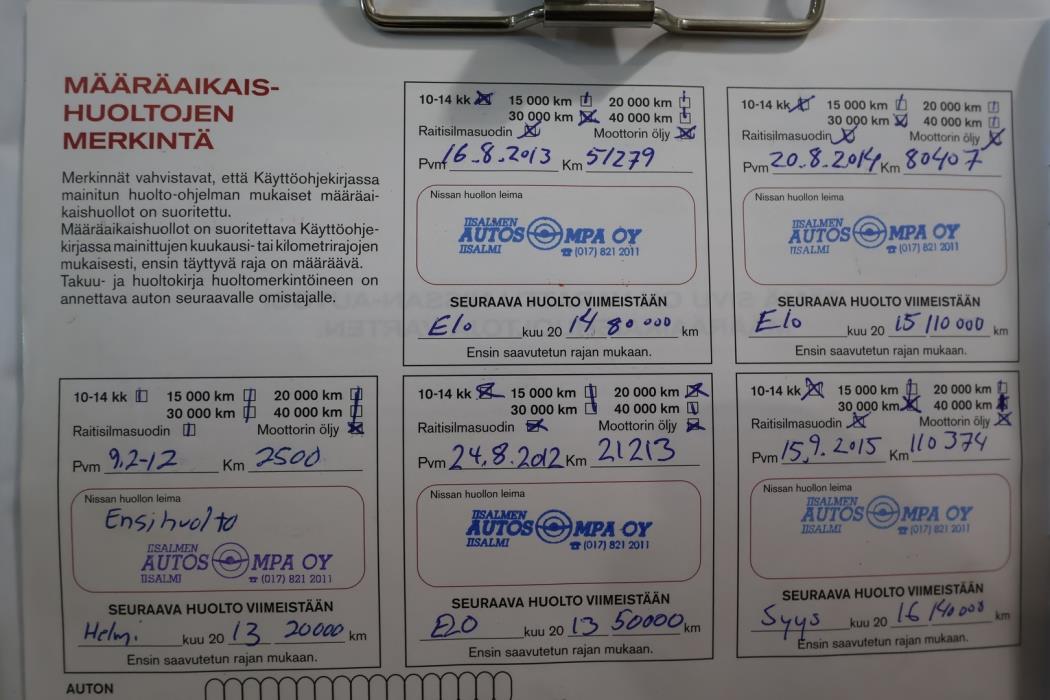 MÄÄRÄAIKAIS-
HUOLTOJEN
MERKINTÄ
Merkinnät vahvistavat, että Käyttöohjekirjassa
mainitun huolto-ohjelman mukaiset määräai-
kaishuollot on suoritettu.
Määräaikaishuollot on suoritettava Käyttöohje-
kirjassa mainittujen kuukausi- tai kilometrirajojen
mukaisesti, ensin täyttyvä raja on määräävä.
Takuu- ja huoltokirja huoltomerkintöineen on
annettava auton seuraavalle omistajalle.
10-14 kk 15 000 km 20 000 km
30 000 km 40 000 km
Raitisilmasuodin Moottorin öljy
Pvm 16.8.2013 Km 51279
Nissan huollon leima
IISALMEN
AUTOSOMPA OY
IISALMI ☎ (017) 821 2011
SEURAAVA HUOLTO VIIMEISTÄÄN
Elo kuu 20 14 80000 km
Ensin saavutetun rajan mukaan.
10-14 kk 15 000 km 20 000 km
30 000 km 40 000 km
Raitisilmasuodin Moottorin öljy
Pvm 20.8.2014 Km 80407
Nissan huollon leima
IISALMEN
AUTOSOMPA OY
IISALMI ☎ (017) 821 2011
SEURAAVA HUOLTO VIIMEISTÄÄN
Elo kuu 20 15 110 000 km
Ensin saavutetun rajan mukaan.
10-14 kk 15 000 km 20 000 km
30 000 km 40 000 km
Raitisilmasuodin Moottorin öljy
Pvm 9.2-12 Km 2500
Nissan huollon leima
Ensihuolto
IISALMEN
AUTOSOMPA OY
IISALMI ☎ (017) 821 2011
SEURAAVA HUOLTO VIIMEISTÄÄN
Helmi kuu 20 13 20000 km
Ensin saavutetun rajan mukaan.
10-14 kk 15 000 km 20 000 km
30 000 km 40 000 km
Raitisilmasuodin Moottorin öljy
Pvm 24.8.2012 Km 21213
Nissan huollon leima
IISALMEN
AUTOSOMPA OY
IISALMI ☎ (017) 821 2011
SEURAAVA HUOLTO VIIMEISTÄÄN
ELO kuu 20 13 50000 km
Ensin saavutetun rajan mukaan.
10-14 kk 15 000 km 20 000 km
30 000 km 40 000 km
Raitisilmasuodin Moottorin öljy
Pvm 15.9.2015 Km 110 374
Nissan huollon leima
IISALMEN
AUTOSOMPA OY
IISALMI ☎ (017) 821 2011
SEURAAVA HUOLTO VIIMEISTÄÄN
Syys kuu 20 16 140000 km
Ensin saavutetun rajan mukaan.
AUTON